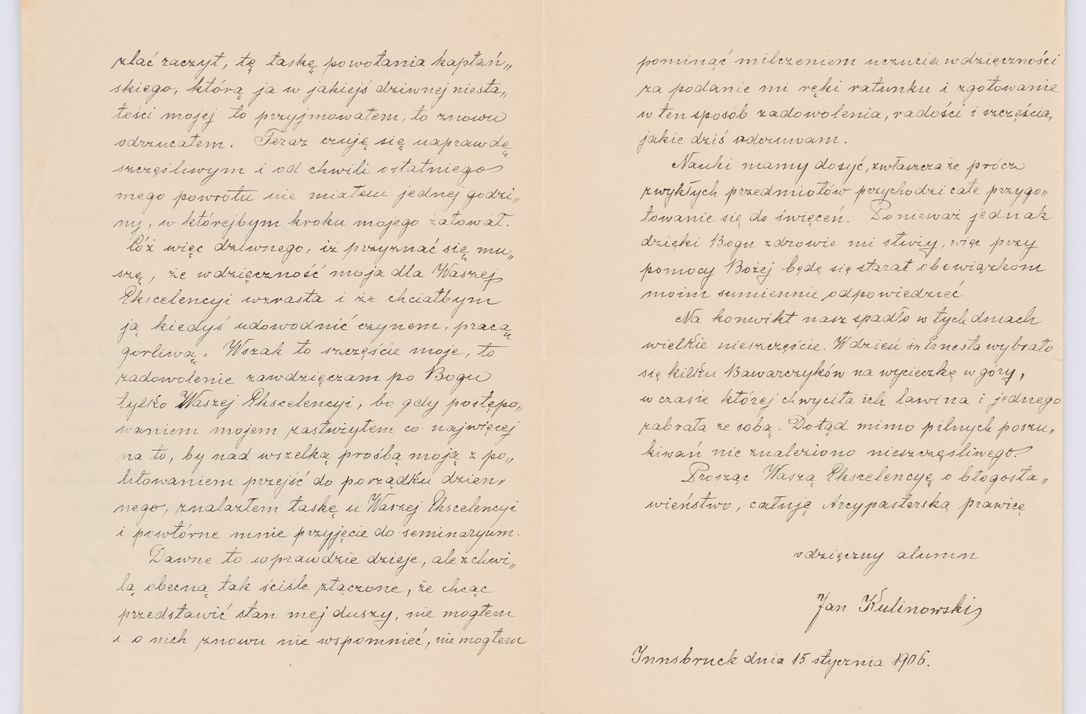 zlać raczył, tę łaskę powołania kapłań„
skiego, którą ja w jakiejś dziwnej niesta„
łości mojej to przyjmowałem, to znowu
odrzucałem. Teraz czuję się naprawdę
szczęśliwym i od chwili ostatniego
mego powrotu nie miałem jednej godzi„
ny, w którejbym kroku mojego żałował.
Cóż więc dziwnego, iż przyznać się mu„
szę, że wdzięczność moja dla Waszej
Ekscelencyi wzrasta i że chciałbym
ją kiedyś udowodnić czynem, pracą
gorliwą. Wszak to szczęście moje, to
zadowolenie zawdzięczam po Bogu
tylko Waszej Ekscelencyi, bo gdy postępo„
waniem mojem zasłużyłem co najwięcej
na to, by nad wszelką prośbą moją z po„
litowaniem przejść do porządku dzien„
nego, znalazłem łaskę u Waszej Ekscelencyi
i powtórne mnie przyjęcie do seminaryum.
Dawne to wprawdzie dzieje, ale z chwi„
lą obecną tak ściśle złączone, że chcąc
przedstawić stan mej duszy, nie mogłem
i o nich znowu nie wspomnieć, nie mogłem
pominąć milczeniem uczucia wdzięczności
za podanie mi ręki ratunku i zgotowanie
w ten sposób zadowolenia, radości i szczęścia,
jakie dziś odczuwam.
Nauki mamy dosyć, zwłaszcza że prócz
zwykłych przedmiotów przychodzi całe przygo„
towanie się do święceń. Ponieważ jednak
dzięki Bogu zdrowie mi służy, więc przy
pomocy Bożej będę się starał obowiązkom
moim sumiennie odpowiedzieć.
Na konwikt nasz spadło w tych dniach
wielkie nieszczęście. W dzień św. Ernesta wybrało
się kilku Bawarczyków na wycieczkę w góry,
w czasie której chwyciła ich lawina i jednego
zabrała ze sobą. Dotąd mimo pilnych poszu„
kiwań nie znaleziono nieszczęśliwego.
Prosząc Waszą Ekscelencyę o błogosła„
wieństwo, całuję Arcypasterską prawicę
wdzięczny alumn
Jan Kulinowski
Innsbruck dnia 15 stycznia 1906.